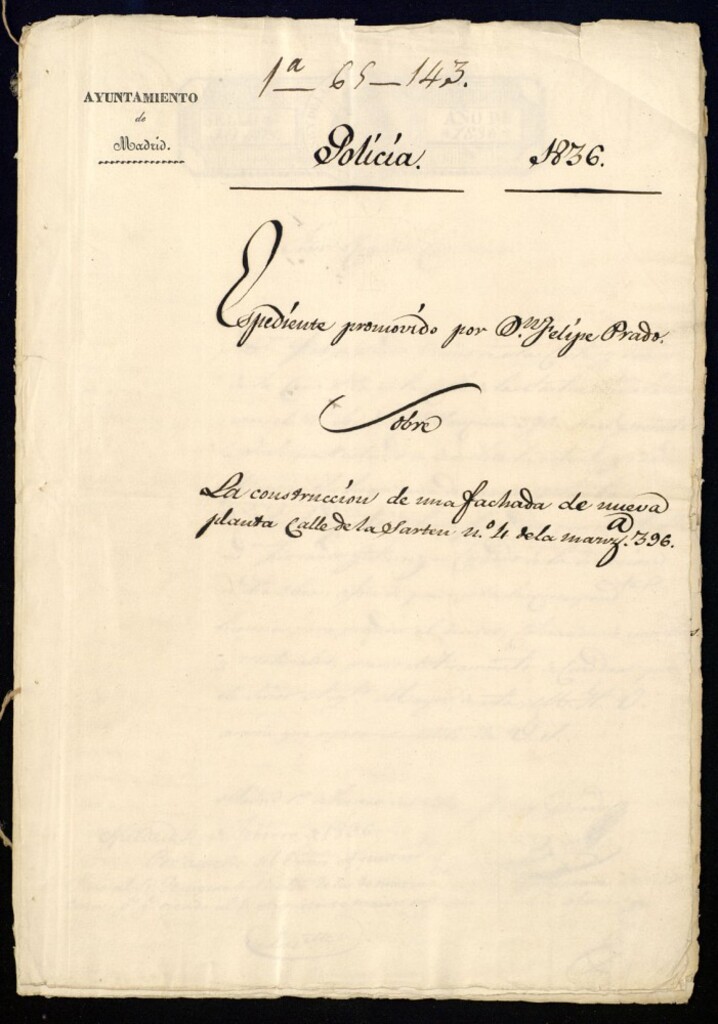 1ª 65-143.
AYUNTAMIENTO
de
Madrid.
Policía. 1836.
Espediente promovido por D.n Felipe Prado.
Sobre
La construccion de una fachada de nueva
planta Calle de la Sarten n.º 4 de la manz.ª 396.